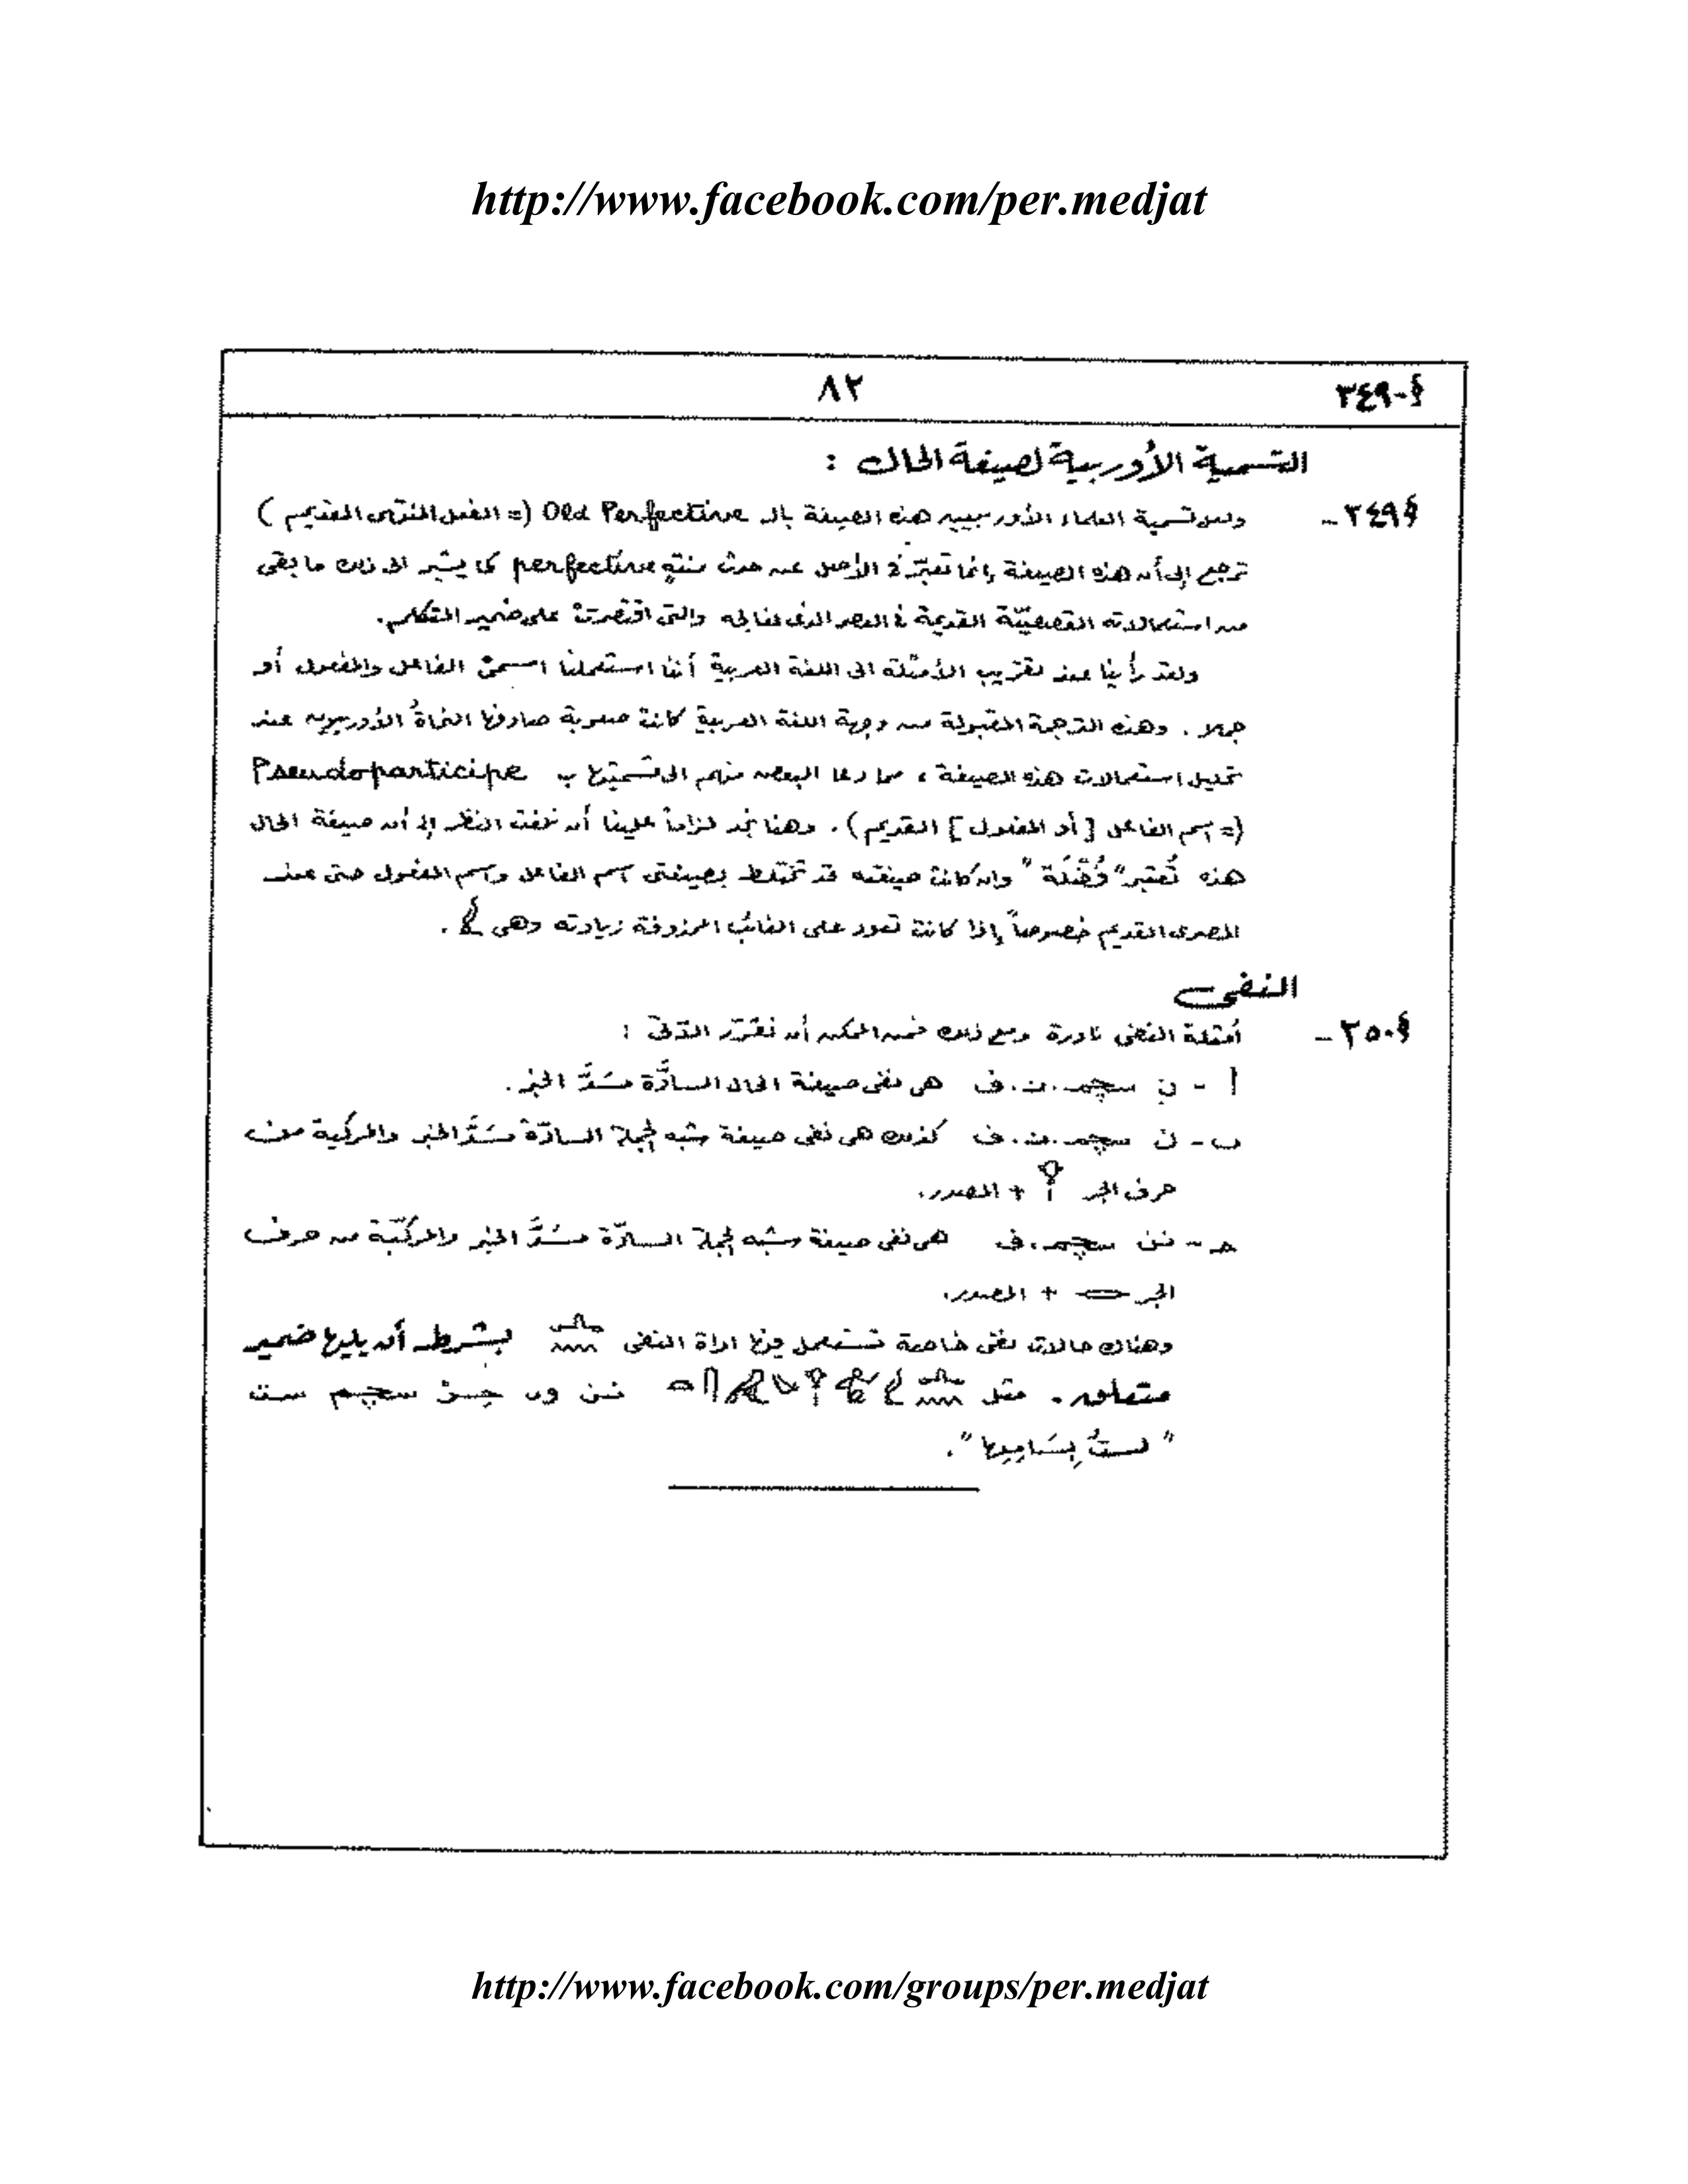 http://www.facebook.com/per.medjat
§-٣٤٩ ٨٢
التسمية الأوربية لصيغة الحال :
§٣٤٩- ولعل تسمية العلماء الأوربيين هذه الصيغة بالـ Old Perfective (= الفعل المنتهى القديم )
ترجع إلى أن هذه الصيغة إنما تعبّر فى الأصل عن حدث منتهٍ perfective كما يشير الى ذلك ما بقى
من استعمالاته القصصيّة القديمة فى العصر الذى نعالجه والتى اقتصرتْ على ضمير المتكلم.
ولقد رأينا عند تقريب الأمثلة الى اللغة العربية أننا استعملنا اسمىْ الفاعل والمفعول أو
جملا . وهذه الترجمة المقبولة من وجهة اللغة العربية كانت صعوبة صادفها النحاةُ الأوربيون عند
تحليل استعمالات هذه الصيغة ، مما دعا البعض منهم الى تسميتها بـ Pseudoparticipe
(= اسم الفاعل [ أو المفعول ] القديم) . وهنا نجد لزاماً علينا أن نلفت النظر إلى أن صيغة الحال
هذه تُعتبر "فُضْلَة" وإن كانت صيغته قد تختلط بصيغتى اسم الفاعل واسم المفعول حتى عند
المصرى القديم خصوصاً إذا كانت تعود على الغائب المحذوفة زيادته وهى .
النفى
§٣٥٠- أمثلة النفى نادرة ومع ذلك فمن الممكن أن نقرّر الآتى :
أ - ن سچم.ن.ف هى نفى صيغة الحال السادَّة مَسَدَّ الخبر .
ب - ن سچم.ن.ف كذلك هى نفى صيغة شبه الجملة السادّة مَسَدَّ الخبر والمركبة من
حرف الجر + المصدر.
حـ - نن سچم.ف هى نفى صيغة شبه الجملة السادّة مَسَدَّ الخبر والمركّبة من حرف
الجر + المصدر.
وهناك حالات نفى خاصة تستعمل فيها اداة النفى بشرط أن يليها ضمير
متعلق . مثل نن وى حر سچم ست
"لستُ بِسَامِعِها".
http://www.facebook.com/groups/per.medjat